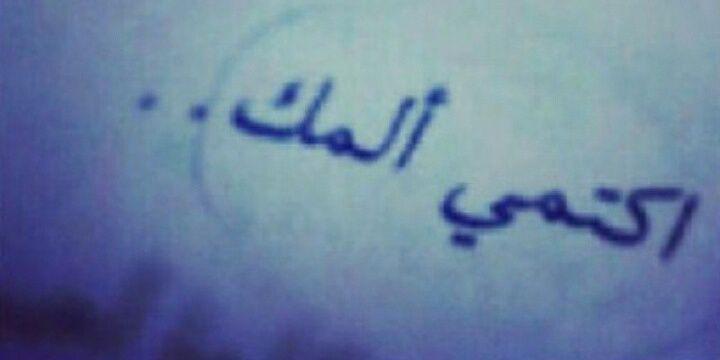 اكتمي ألمك..